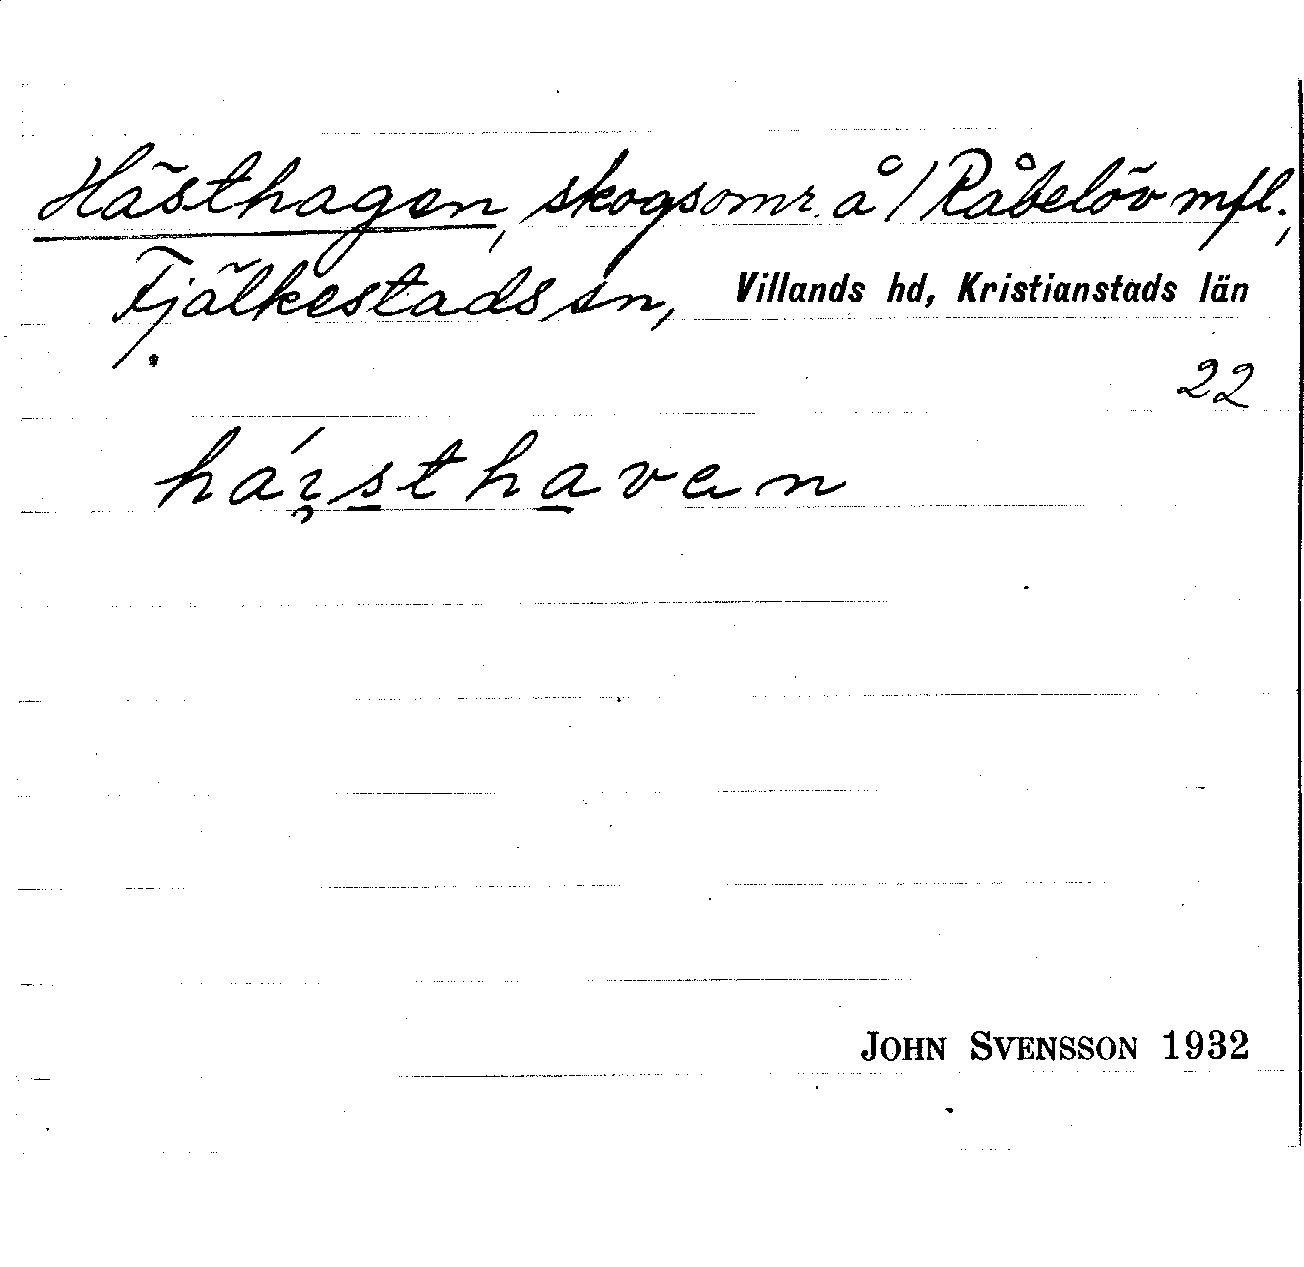 Hästhagen, skogsomr. å / Råbelöv mfl.,
Fjälkestads sn, Villands hd, Kristianstads län
22
háı̨s̲tha̲vɐn
JOHN SVENSSON 1932